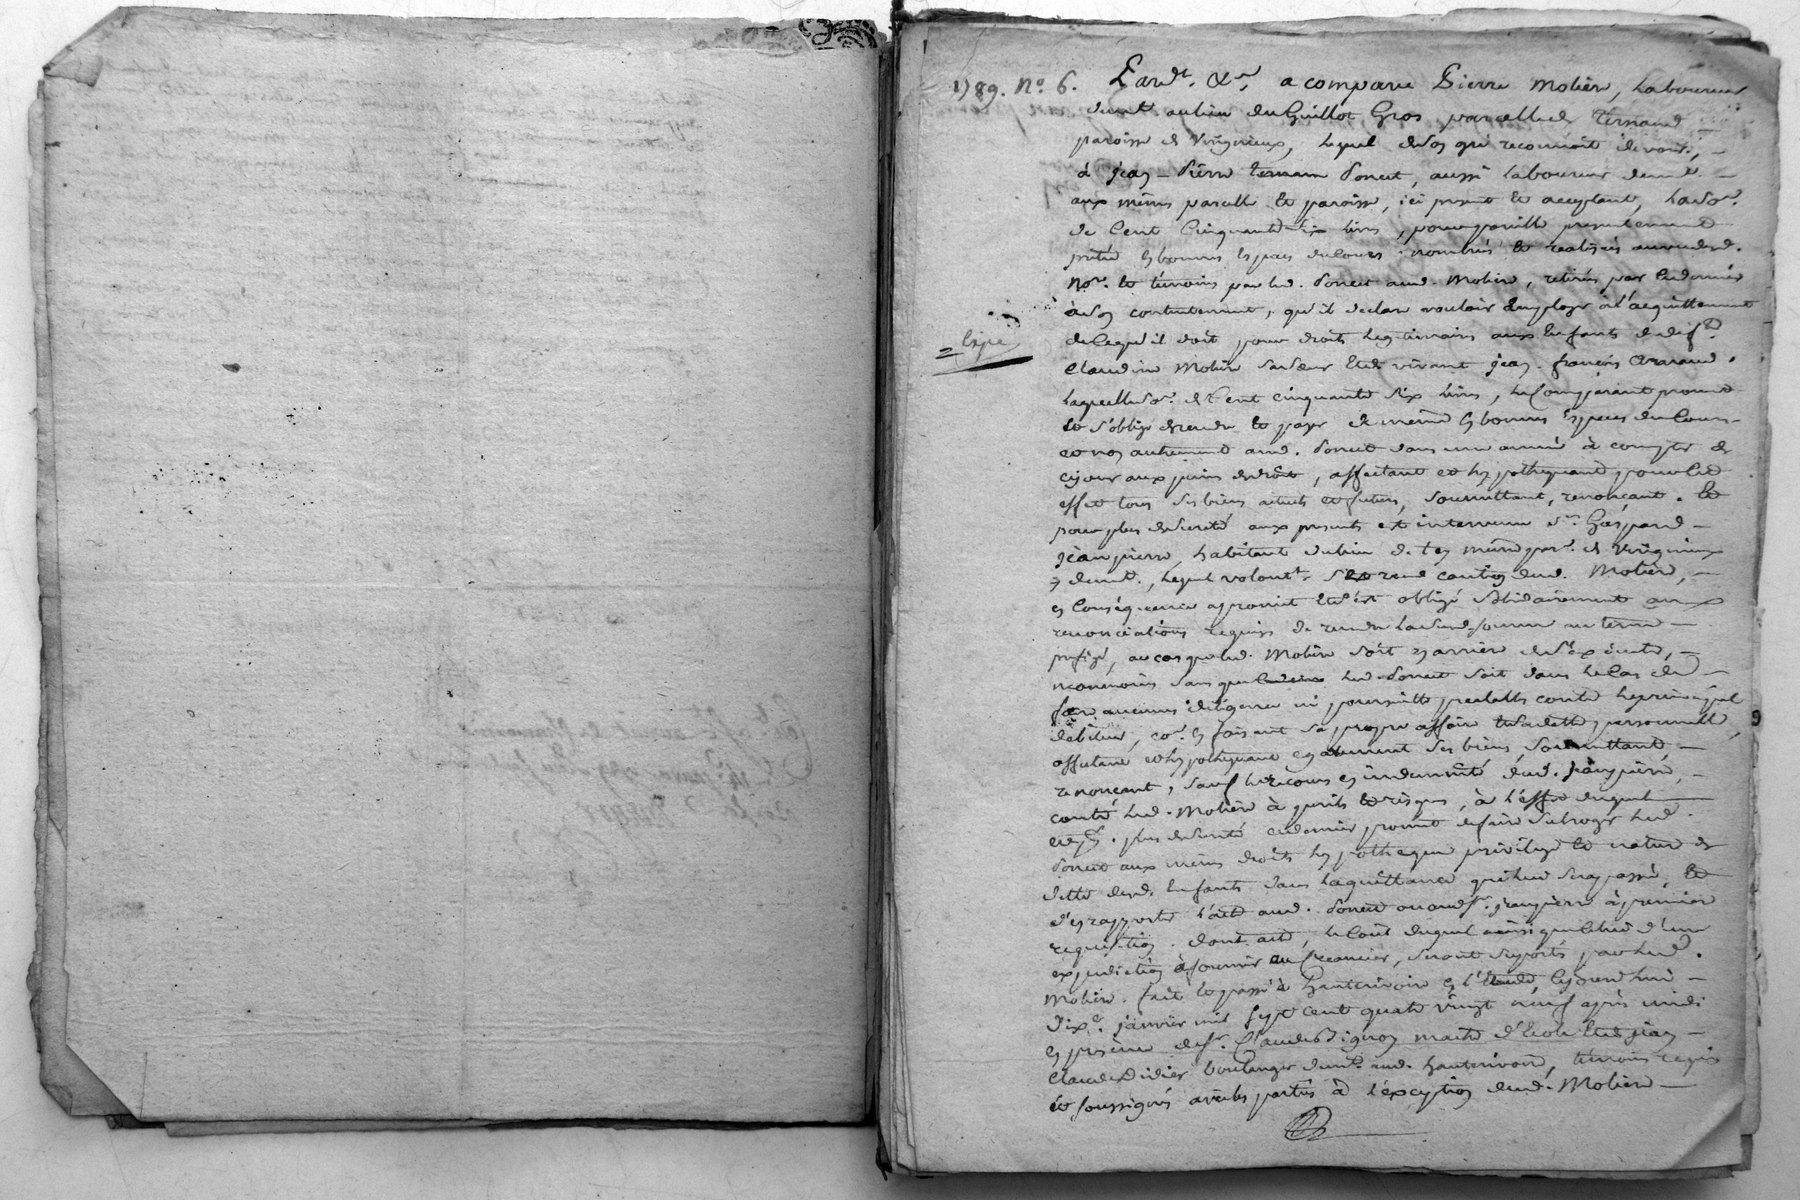 1789. No. 6. Pardt. &a. a comparu Pierre Molière, Laboureur
demt. au lieu du Guillot Gros parcelle de Ternand
paroisse de Virigneux, lequel de son gré reconnoit devoir,
à Jean-Pierre Poncet, aussi laboureur demt.
aux mêmes parcelle et paroisse, ici present et acceptant, la so.
de Cent Cinquante Six livres, pour pareille presentement
prêtée en bonnes Espèces du Cours nombrés et realisés au vu desd.
Nores. et témoins par led. Poncet aud. Molière, retirés par ce dernier
à son contentement, qu'il declare vouloir Employer à l'acquittement
de ce qu'il doit pour droits Legitimaires aux Enfants de def.
Expé
Claudine Molière sa sœur Et de vivant Jean François
laquelle so. de Cent cinquante Six livres, le Comparant promet
et s'oblige de rendre et payer de même en bonnes Espèces du Cours
et non autrement aud. Poncet dans une année à compter de
ce jour aux peines de droit, affectant et hypothequant, pour led.
effet tous ses biens actuels et futurs, soumettant, renonçant. Et
pour plus de sureté aux presents est intervenu Sr. Gaspard
Jeanpierre, habitant du lieu de même par. de Virigneux
y demt., lequel volontt. s'est rend caution dud. Molière,
en Conséquence a promis Et s'est obligé solidairement aux
renonciations requises de rendre lad. somme au terme
prefixé, au cas que led. Molière soit en arriere de s'éxécuter,
neanmoins sans que led. Poncet soit dans le Cas de
faire aucunes diligences ni poursuittes prealables contre le principal
débiteur, co. en faisant sa propre affaire et sa dette personnelle,
affectant et hypothequant egalement ses biens soumettant
renonçant, sauf le recours en indemnité dud. Jeanpierre,
contre led. Molière à perils et risques, à l'effet duquel
et pr. plus de sureté ce dernier promet de faire subroger led.
Poncet aux mêmes droits hypotheque privilege et nature de
dette desd. Enfants dans la quittance qui lui sera passée, Et
d'en rapporter l'acte aud. Poncet ou aud. Sr. Jeanpierre à premiere
requisition. dont acte, le Coût duquel ainsi que Celui d'une
expedition à fournir au Creancier, seront suportés par led.
Molière. fait et passé à hauterivoire en l'Etude, Cejourd'hui
dixe. janvier mil sept cent quatre vingt neuf après midi
en présence de Sr. Claude maitre d'école Et de Jean
Claude Didier boulanger demt. aud. hauterivoire, témoins requis
et soussignés avec les parties à l'exception dud. Molière